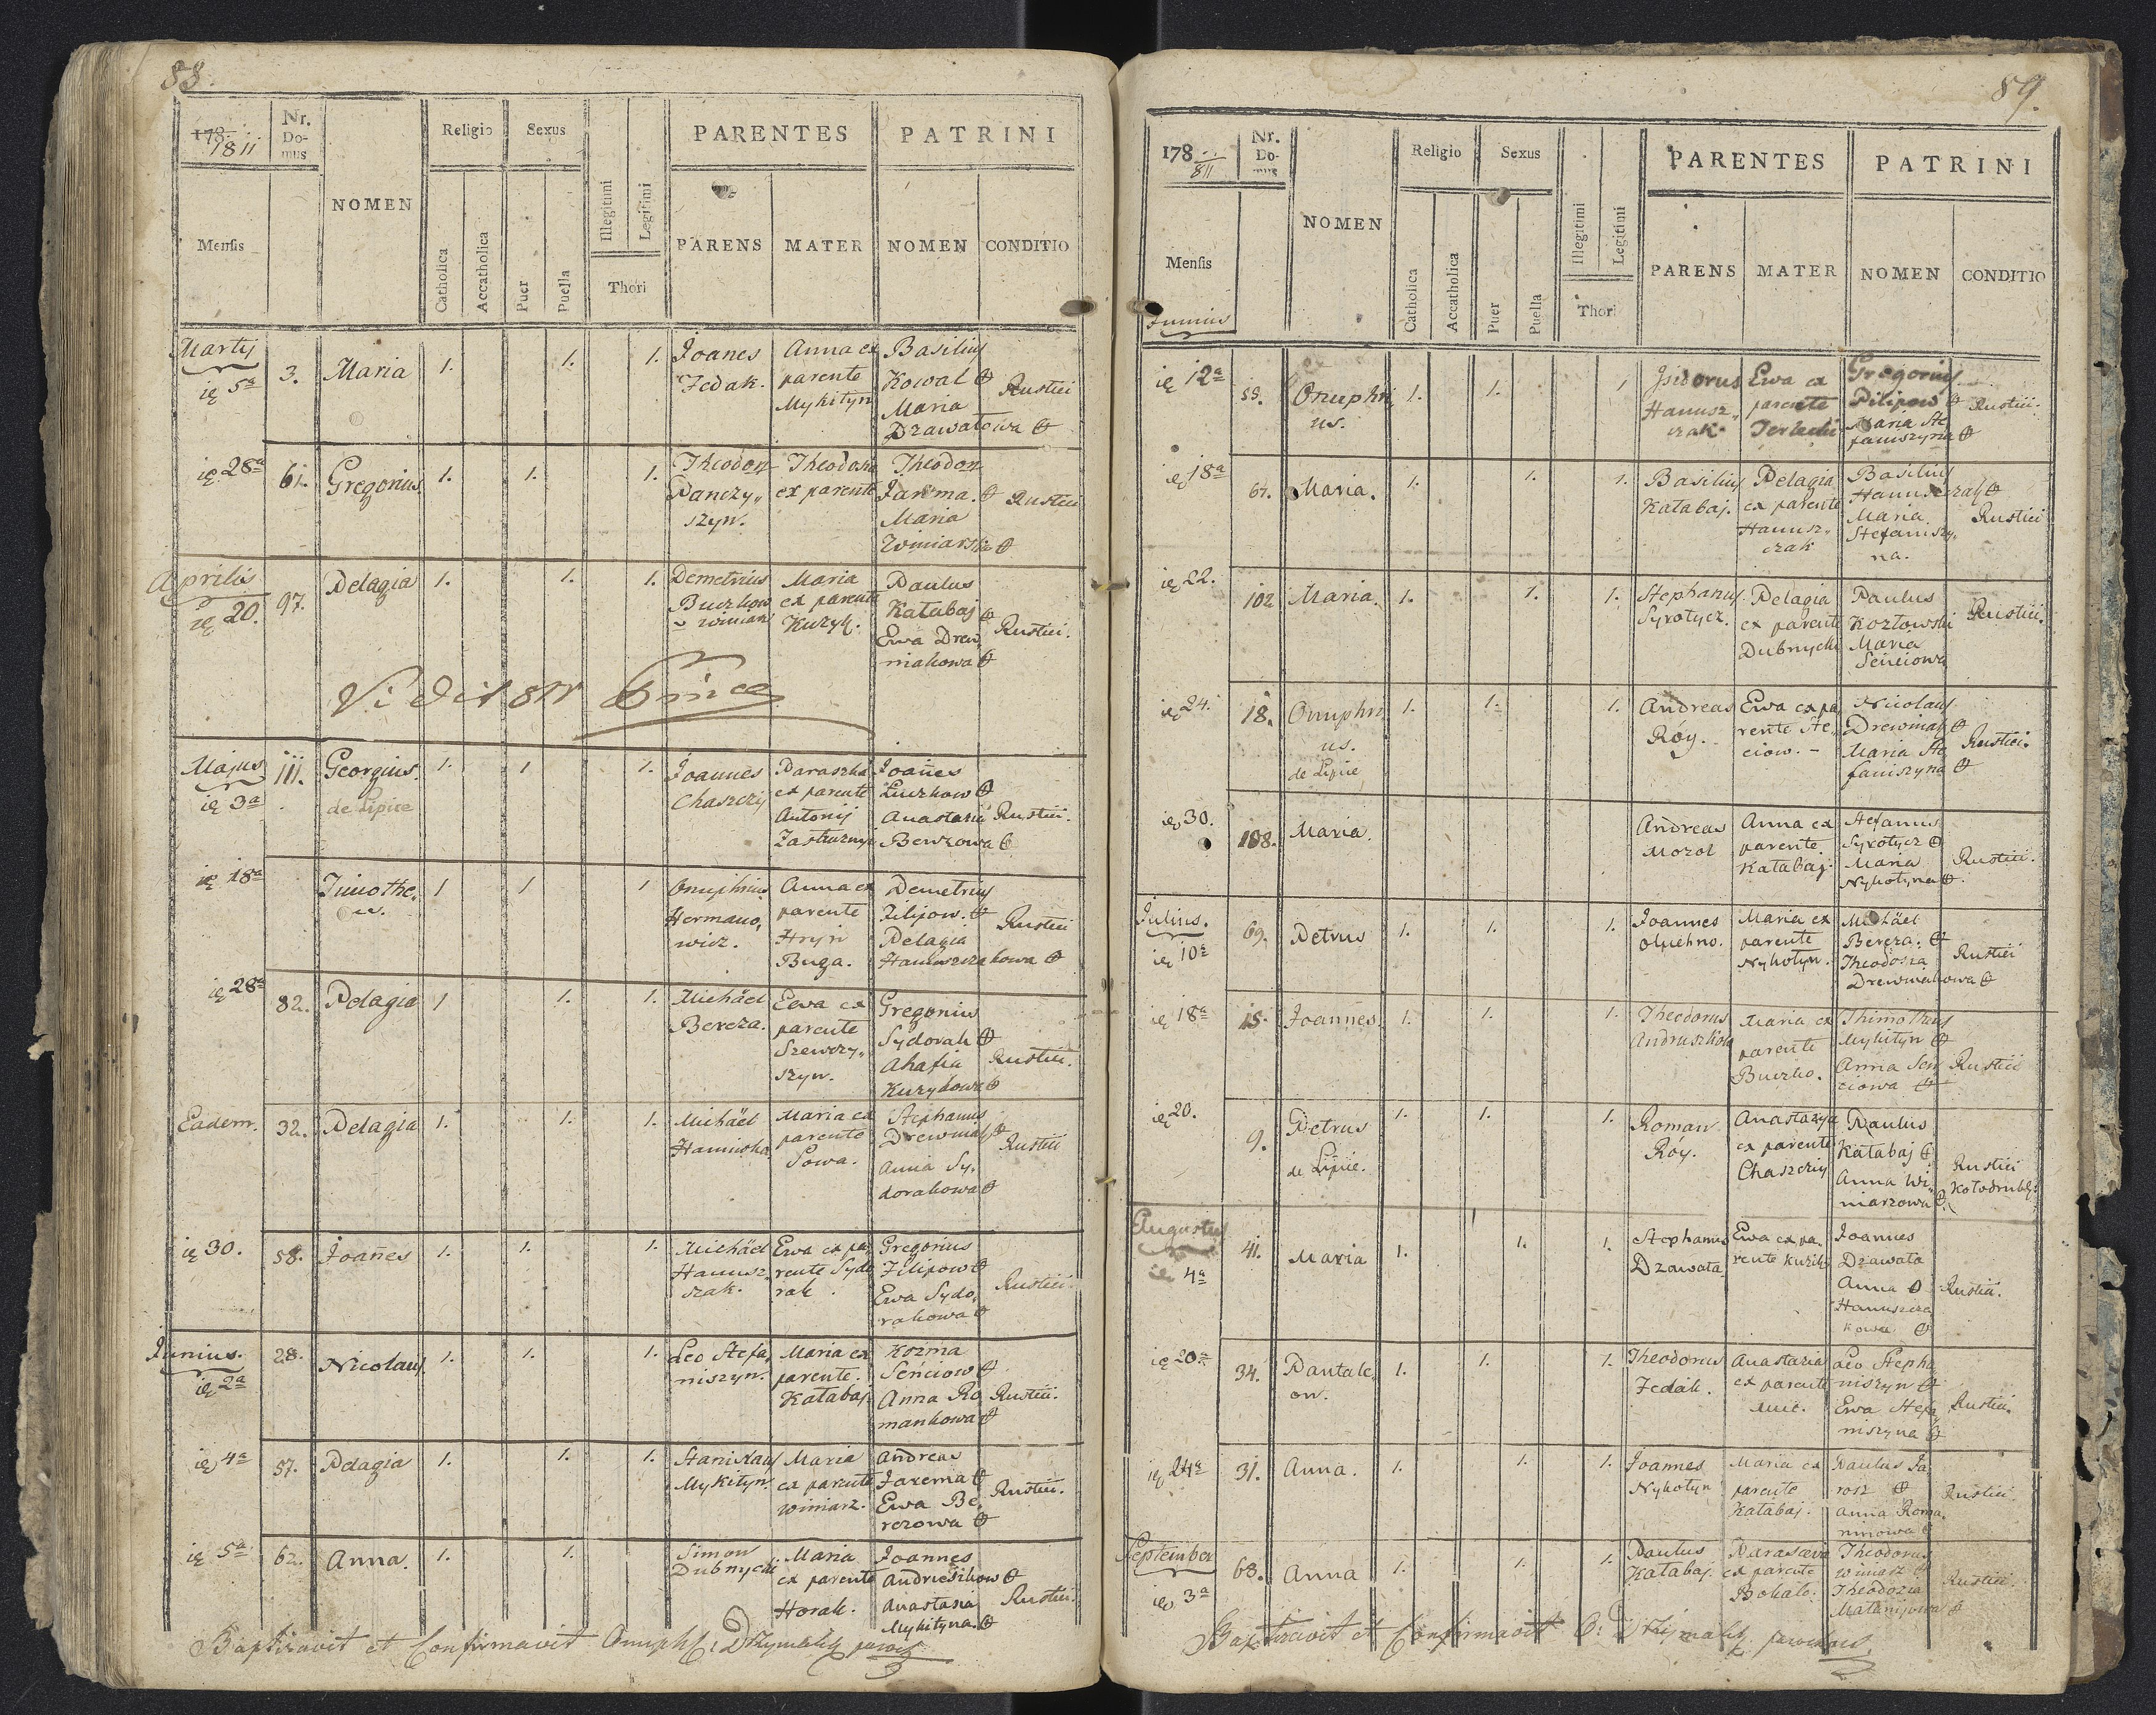 88.
178
1811
Nr. Domus
NOMEN
Religio
Sexus
Illegitimi
Legitimi
PARENTES
PATRINI
Mensis
Catholica
Accatholica
Puer
Puella
Thori
PARENS
MATER
NOMEN
CONDITIO
Martij
ię 5a 3. Maria 1. 1. 1.
Joanes Fedak.
Anna ex parente Mykityn
Basilius Kowal
Maria Dzawatowa
Rustici
ię 28a 61. Gregorius 1. 1. 1.
Panczyszyn.
Theodosia ex parente
Jarema.
Maria
Rustici
Aprilis
ię 20. 97. Pelagia 1. 1. 1.
Demetrius
Maria ex parente Kuzyk.
Paulus Katabaj
Ewa Drewniakowa
Rustici.
Vidit 811
Majus
ię 3a 111. Georgius de Lipice 1. 1 1.
Joannes Chaszczij
Paraszka ex parente Antonij
Joañes Luczkow
Anastasia Berezowa
Rustici.
ię 18a Timotheus. 1 1 1
Onuphrius Hermanowicz.
Anna ex parente Hryń Buga.
Demetrius Filipow.
Pelagia Hanuszczakowa
Rustici
ię 28a 82. Pelagia 1 1. 1.
Michäel Bereza.
Ewa ex parente Szewczyszyn.
Gregorius Sydorak
Ahafia Kuzykowa
Rustici.
Eadem. 32. Pelagia 1. 1. 1.
Michäel
Maria ex parente Sowa.
Stephanus Drewniak
Anna Sydorakowa
Rustici
ię 30. 58. Joañes 1. 1. 1.
Michäel Hanuszczak.
Ewa ex parente Sydorak.
Gregorius Filipow
Ewa Sydorakowa
Rustici.
Junius.
ię 2a 28. Nicolaus 1. 1. 1.
Leo Stefaniszyn.
Maria ex parente. Katabaj
Kozma Senciow
Anna Romankowa
Rustici.
ię 4a 57. Pelagia 1. 1. 1.
Stanislaus Mykityn.
Maria ex parente Winiarz.
Andreas Jarema
Ewa Berezowa
Rustici.
ię 5a 62. Anna. 1. 1.
Simon Dubnycki
Maria ex parente Horak.
Joannes Andrieszkow
Anastasia Mykityna.
Rustici.
Baptizavit et Confirmavit Onuph:
89.
178
811
Nr. Domus
NOMEN
Religio
Sexus
Illegitimi
Legitimi
PARENTES
PATRINI
Mensis
Catholica
Accatholica
Puer
Puella
Thori
PARENS
MATER
NOMEN
CONDITIO
Junius
ię 12a Onuphrius. 1. 1. 1
Isidorus Hanuszczak
Ewa ex parente
Gregorius Pilipow
Maria Stefaniszyna
Rustici.
ię 18a 67. Maria. 1. 1. 1.
Basilius Katabaj.
Pelagia ex parente Hanuszczak
Basilius Hanuszczak
Maria Stefaniszyna.
Rustici
ię 22. 102 Maria. 1. 1. 1.
Stephanus Syrotycz.
Pelagia ex parente Dubnycki
Paulus Kozlowski
Maria Senciowa
Rustici.
ię 24. 18. Onuphrius. de Lipice 1. 1. 1.
Andreas Róy.
Ewa ex parente Steciow.
Nicolaus Drewniak
Maria Stefaniszyna
Rustici.
ię 30. 108. Maria.
Andreas Mozol
Anna ex parente Katabaj.
Stefanus Syrotycz
Maria Nykotyna
Rustici.
Julius.
ię 10a 69. Petrus 1. 1. 1.
Joannes
Maria ex parente Nykotyn.
Michäel Bereza.
Theodosia Drewniakowa
Rustici
ię 18a 15. Joannes. 1. 1. 1.
Theodorus Andruszkow
Maria ex parente Buczko.
Thimotheus Mykityn
Anna Senciowa
Rustici
ię 20. 9. Petrus de Lipice. 1. 1. 1.
Roman Róy.
Anastazya ex parente Chaszczij
Paulus Katabaj
Anna Winiarzowa
Rustici
Augustus
ię 4a 41. Maria 1. 1. 1.
Stephanus Dzawata
Ewa ex parente Kuzik
Joannes Dzawata
Anna Hanuszczakowa
Rustici.
ię 20a 34. Pantaleon. 1. 1. 1.
Theodorus Fedak.
Anastazia ex parente
Leo Stephaniszyn
Ewa Stefaniszyna
Rustici.
ię 24a 31. Anna. 1. 1. 1.
Joannes Nykotyn
Maria ex parente Katabaj.
Paulus Jarosz
Anna Romaninowa
Rustici.
September
ię 3a 63. Anna 1. 1. 1.
Paulus Katabaj.
Parasceva ex parente
Theodorus Winiarz
Theodozia
Rustici.
Baptizavit et Confirmavit O: